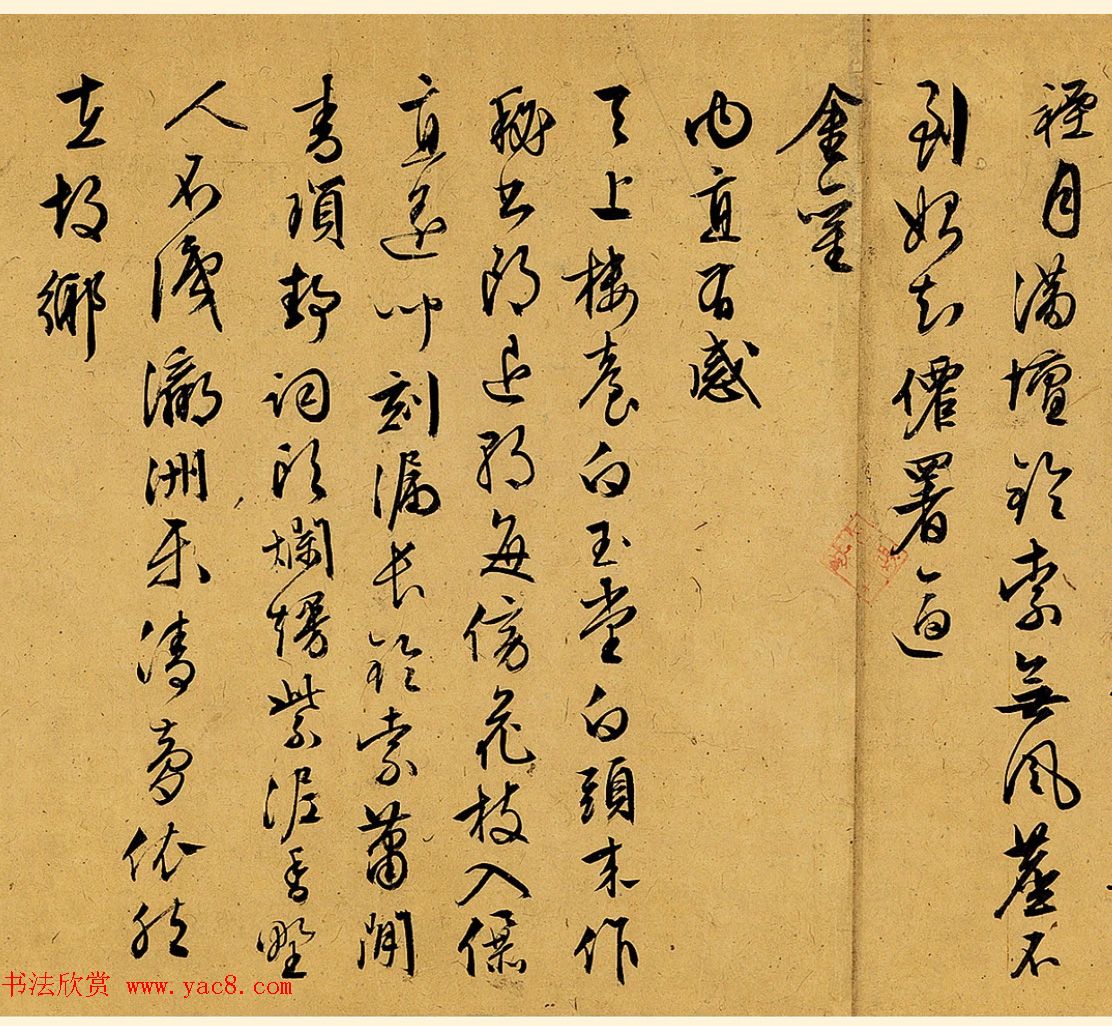 月滿壇鈴索無風塵不
到始知僊署逈
金鑾
内直有感
天上樓臺白玉堂白頭來作
秘書郎退朝每傍花枝入儤
直遙聞刻漏長鈴索蕭閒
青瑣靜詞頭爛熳紫泥香野
人不淺瀛洲樂清夢依然
在故鄉
书法欣赏 www.yac8.com